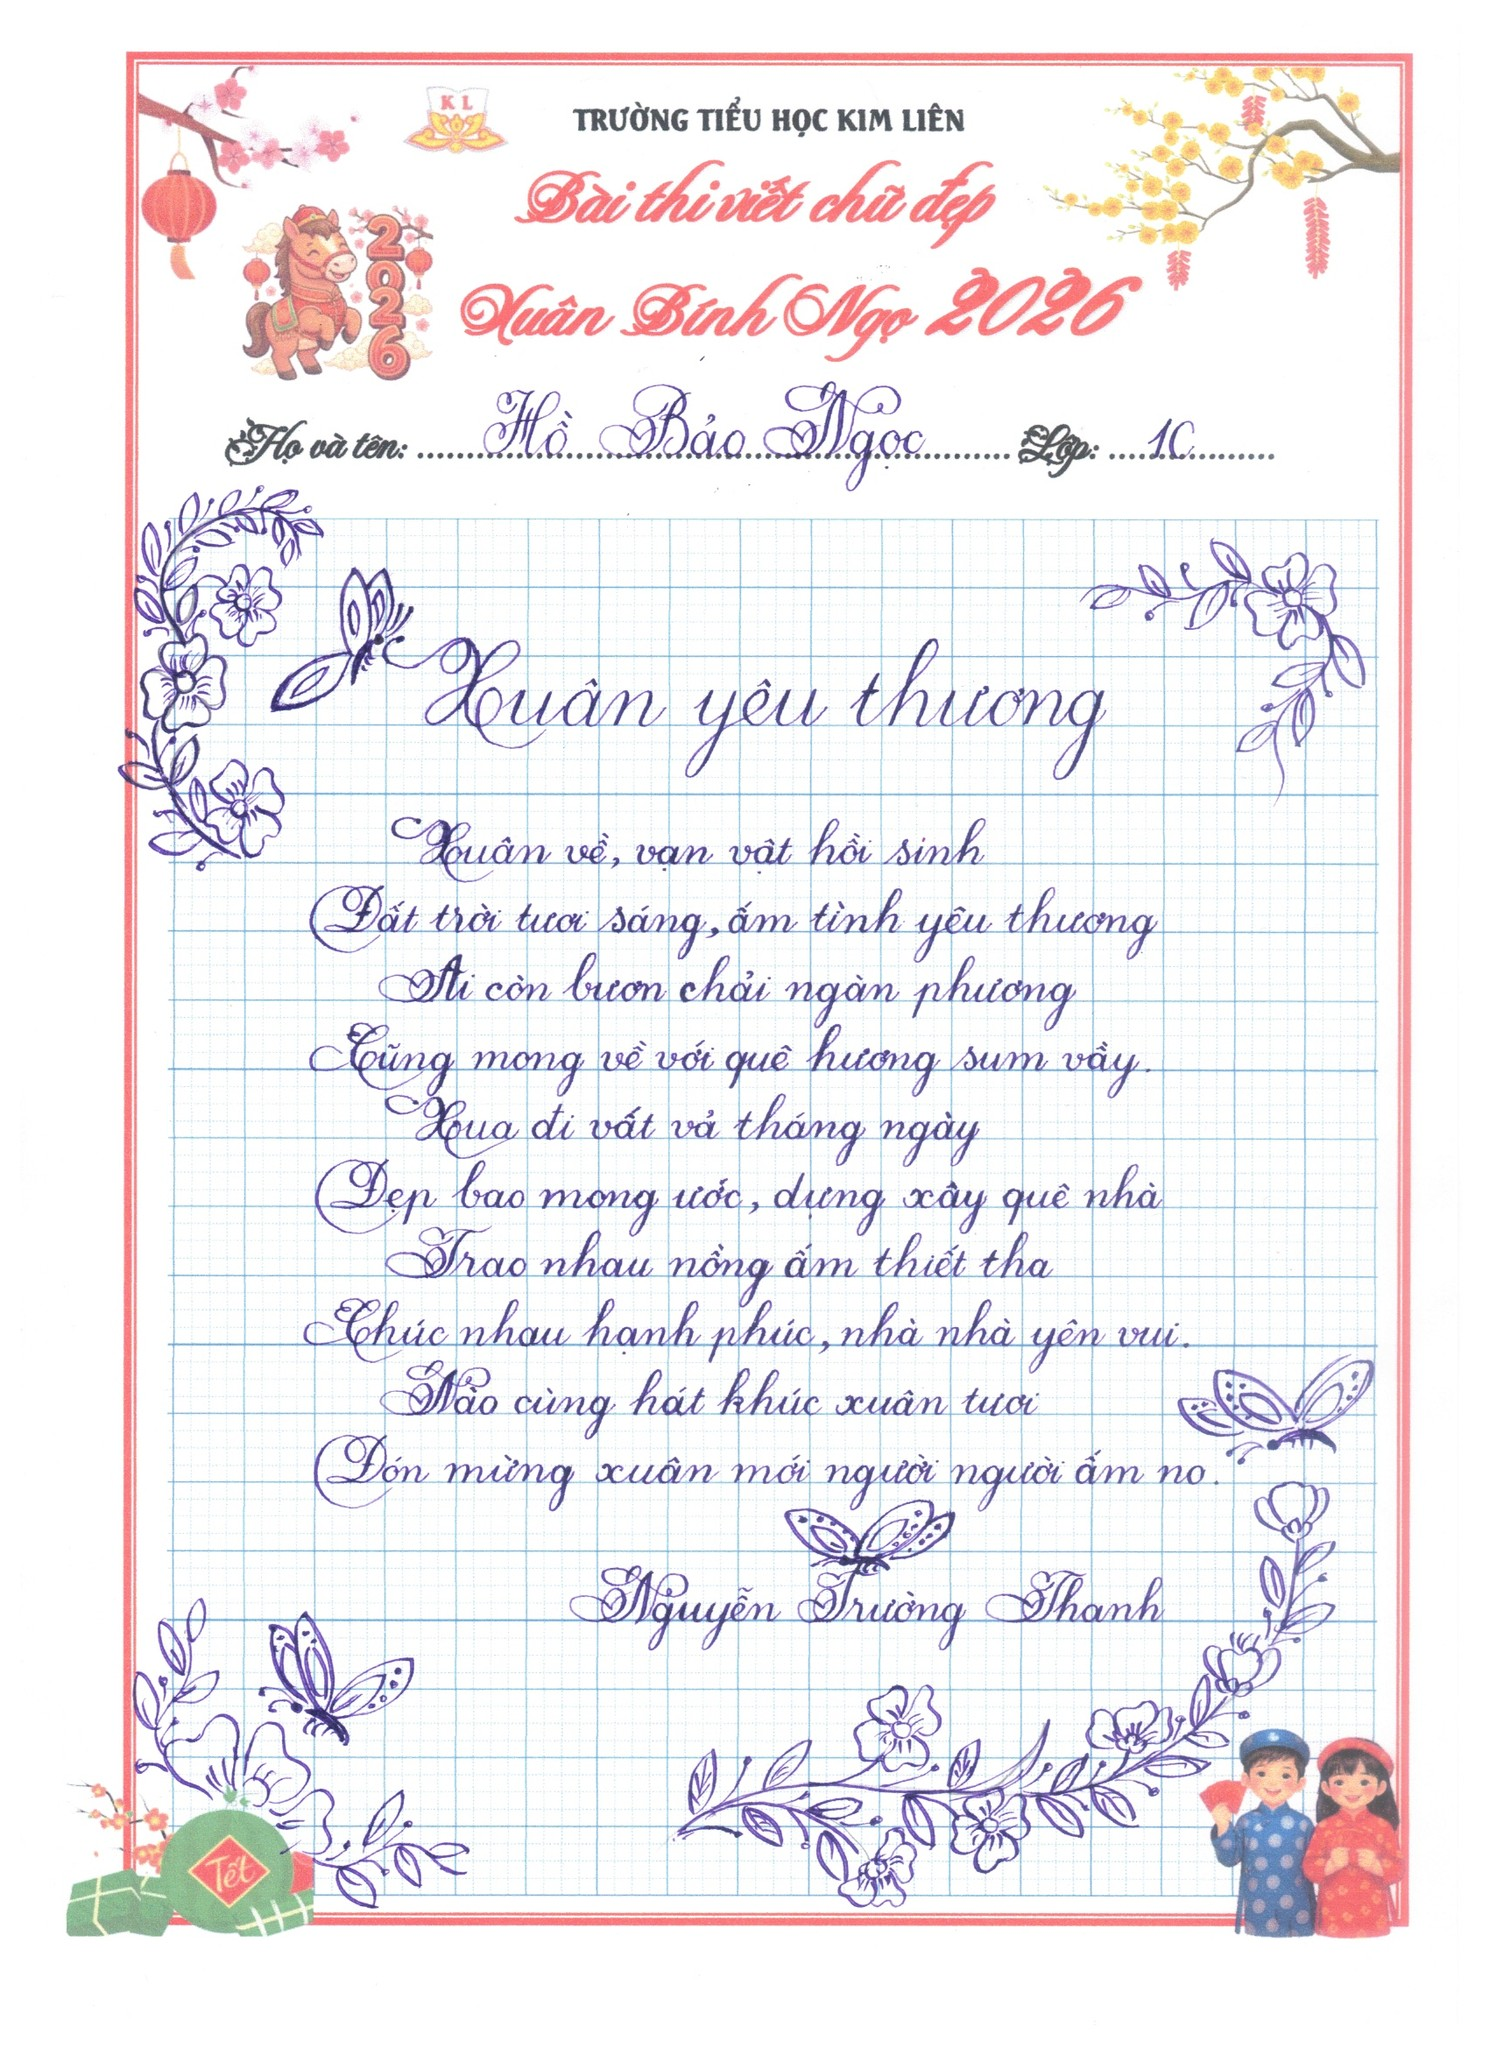 K L
TRƯỜNG TIỂU HỌC KIM LIÊN
Bài thi viết chữ đẹp
2026
Xuân Bính Ngọ 2026
Họ và tên: Hồ Bảo Ngọc Lớp: 1C
Xuân yêu thương
Xuân về, vạn vật hồi sinh
Đất trời tươi sáng, ấm tình yêu thương
Ai còn bươn chải ngàn phương
Cũng mong về với quê hương sum vầy.
Xua đi vất vả tháng ngày
Đẹp bao mong ước, dựng xây quê nhà
Trao nhau nồng ấm thiết tha
Chúc nhau hạnh phúc, nhà nhà yên vui.
Nào cùng hát khúc xuân tươi
Đón mừng xuân mới người người ấm no.
Nguyễn Trường Thanh
Tết